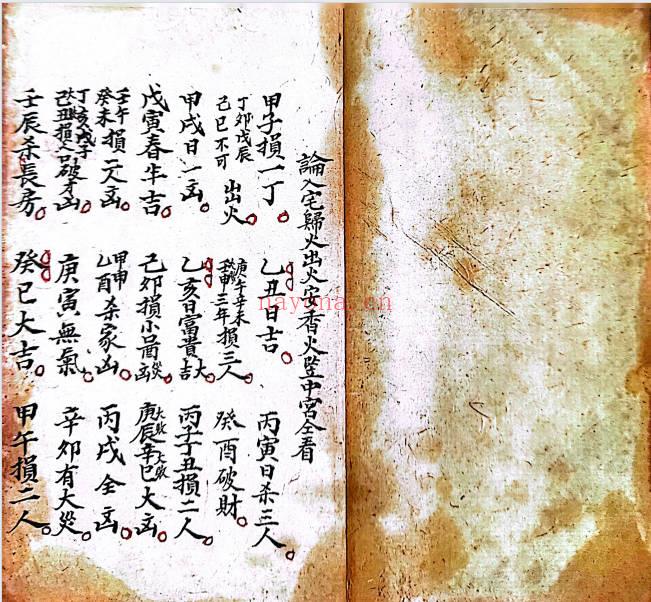 論入宅歸火出火安香火竪中宮全看
甲子損一丁 乙丑日吉 丙寅日杀三人
丁卯戊辰己巳不可出火 庚午辛未壬申三年損三人 癸酉破財
甲戌日一凶 乙亥日富貴大吉 丙子丁丑損二人
戊寅春牛吉 己卯損小苗凶 庚辰辛巳大凶
壬午癸未損二人凶 甲申乙酉杀家凶 丙戌全凶
丁亥戊子己丑損人口破才凶 庚寅無氣 辛卯有大災
壬辰杀長房 癸巳大吉 甲午損二人
nayona.cn